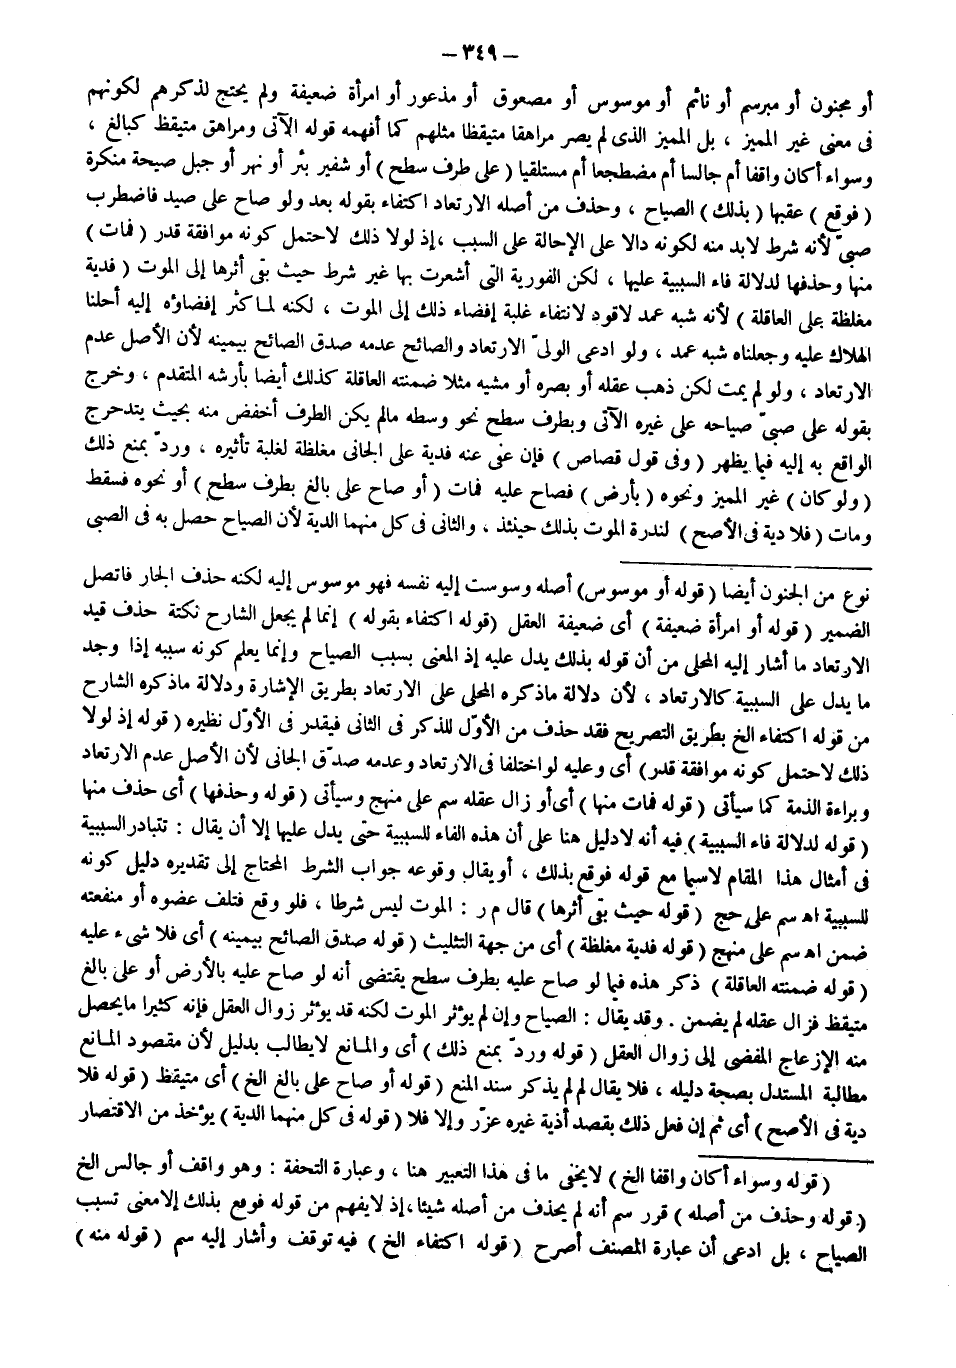 – ٣٤٩ –
أو مجنون أو مبرسم أو نائم أو موسوس أو مصعوق أو مذعور أو امرأة ضعيفة ولم يحتج لذكرهم لكونهم
فى معنى غير المميز ، بل المميز الذى لم يصر مراهقا متيقظا مثلهم كما أفهمه قوله الآتى ومراهق متيقظ كبالغ ،
وسواء أكان واقفا أم جالسا أم مضطجعا أم مستلقيا ( على طرف سطح ) أو شفير بئر أو نهر أو جبل صيحة منكرة
( فوقع ) عقبها ( بذلك ) الصياح ، وحذف من أصله الارتعاد اكتفاء بقوله بعد ولو صاح على صيد فاضطرب
صبىّ لأنه شرط لابد منه لكونه دالا على الإحالة على السبب ،إذ لولا ذلك لاحتمل كونه موافقة قدر ( فمات )
منها وحذفها لدلالة فاء السببية عليها ، لكن الفورية التى أشعرت بها غير شرط حيث بقى أثرها إلى الموت ( فدية
مغلظة على العاقلة ) لأنه شبه عمد لاقود لانتفاء غلبة إفضاء ذلك إلى الموت ، لكنه لما كثر إفضاؤه إليه أحلنا
الهلاك عليه وجعلناه شبه عمد ، ولو ادعى الولىّ الارتعاد والصائح عدمه صدق الصائح بيمينه لأن الأصل عدم
الارتعاد ، ولو لم يمت لكن ذهب عقله أو بصره أو مشيه مثلا ضمنته العاقلة كذلك أيضا بأرشه المتقدم ، وخرج
بقوله على صبىّ صياحه على غيره الآتى وبطرف سطح نحو وسطه مالم يكن الطرف أخفض منه بحيث يتدحرج
الواقع به إليه فيما يظهر ( وفى قول قصاص ) فإن عفى عنه فدية على الجانى مغلظة لغلبة تأثيره ، وردّ بمنع ذلك
( ولو كان ) غير المميز ونحوه ( بأرض ) فصاح عليه فمات ( أو صاح على بالغ بطرف سطح ) أو نحوه فسقط
ومات ( فلا دية فى الأصح ) لندرة الموت بذلك حينئذ ، والثانى فى كل منهما الدية لأن الصياح حصل به فى الصبى
نوع من الجنون أيضا ( قوله أو موسوس ) أصله وسوست إليه نفسه فهو موسوس إليه لكنه حذف الجار فاتصل
الضمير ( قوله أو امرأة ضعيفة ) أى ضعيفة العقل (قوله اكتفاء بقوله ) إنما لم يجعل الشارح نكتة حذف قيد
الارتعاد ما أشار إليه المحلى من أن قوله بذلك يدل عليه إذ المعنى بسبب الصياح وإنما يعلم كونه سببه إذا وجد
ما يدل على السببية كالارتعاد ، لأن دلالة ماذكره المحلى على الارتعاد بطريق الإشارة ودلالة ماذكره الشارح
من قوله اكتفاء الخ بطريق التصريح فقد حذف من الأوّل للذكر فى الثانى فيقدر فى الأوّل نظيره ( قوله إذ لولا
ذلك لاحتمل كونه موافقة قدر) أى وعليه لو اختلفا فى الارتعاد وعدمه صدّق الجانى لأن الأصل عدم الارتعاد
وبراءة الذمة كما سيأتى ( قوله فمات منها ) أى أو زال عقله سم على منهج وسيأتى ( قوله وحذفها ) أى حذف منها
( قوله لدلالة فاء السببية ) فيه أنه لادليل هنا على أن هذه الفاء للسببية حتى يدل عليها إلا أن يقال : تتبادر السببية
فى أمثال هذا المقام لاسيما مع قوله فوقع بذلك ، أو يقال وقوعه جواب الشرط المحتاج إلى تقديره دليل كونه
للسببية اهـ سم على حج ( قوله حيث بقى أثرها ) قال م ر : الموت ليس شرطا ، فلو وقع فتلف عضوه أو منفعته
ضمن اهـ سم على منهج ( قوله فدية مغلظة ) أى من جهة التثليث ( قوله صدق الصائح بيمينه ) أى فلا شىء عليه
( قوله ضمنته العاقلة ) ذكر هذه فيما لو صاح عليه بطرف سطح يقتضى أنه لو صاح عليه بالأرض أو على بالغ
متيقظ فزال عقله لم يضمن . وقد يقال : الصياح وإن لم يؤثر الموت لكنه قد يؤثر زوال العقل فإنه كثيرا مايحصل
منه الإزعاج المفضى إلى زوال العقل ( قوله وردّ بمنع ذلك ) أى والمانع لايطالب بدليل لأن مقصود المانع
مطالبة المستدل بصحة دليله ، فلا يقال لم لم يذكر سند المنع ( قوله أو صاح على بالغ الخ ) أى متيقظ ( قوله فلا
دية فى الأصح ) أى ثم إن فعل ذلك بقصد أذية غيره عزّر وإلا فلا ( قوله فى كل منهما الدية ) يؤخذ من الاقتصار
( قوله وسواء أكان واقفا الخ ) لايخفى ما فى هذا التعبير هنا ، وعبارة التحفة : وهو واقف أو جالس الخ
( قوله وحذف من أصله ) قرر سم أنه لم يحذف من أصله شيئا ،إذ لايفهم من قوله فوقع بذلك إلا معنى تسبب
الصياح ، بل ادعى أن عبارة المصنف أصرح ( قوله اكتفاء الخ ) فيه توقف وأشار إليه سم ( قوله منه )